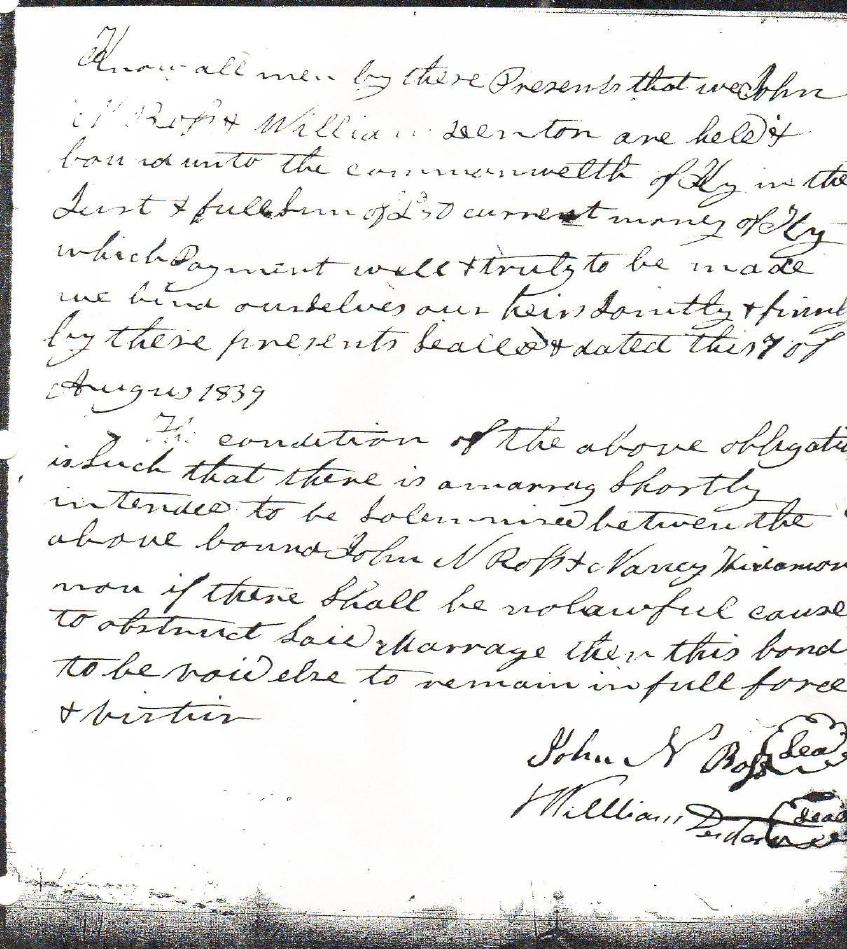 Know all men by these Presents that we John
N Ross & William Denton are held &
bound unto the commonwelth of Ky in the
Just & full Sum of £50 current money of Ky
which Payment well & truly to be made
we bind ourselves our heirs Jointly & firmly
by these presents Sealed & dated this 7 of
August 1839
The condition of the above obligatio
is Such that there is a marrag Shortly
intended to be Solemnised between the
above bound John N Ross & Nancy
now if there Shall be no lawful cause
to obstruct Said Marrage then this bond
to be void else to remain in full force
& virtur
John N Ross Seal
William Denton Seal